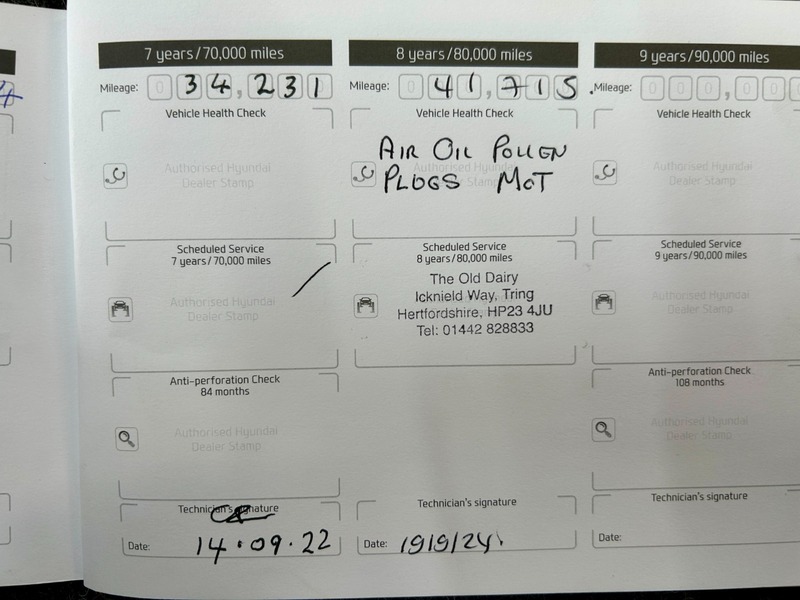 7 years/70,000 miles
Mileage: 0 3 4, 2 3 1
Vehicle Health Check
Authorised Hyundai
Dealer Stamp
Scheduled Service
7 years/70,000 miles
Authorised Hyundai
Dealer Stamp
Anti-perforation Check
84 months
Authorised Hyundai
Dealer Stamp
Technician's signature
Date: 14.09.22
8 years/80,000 miles
Mileage: 0 4 1, 7 1 5.
Vehicle Health Check
AIR OIL POLLEN
Authorised Hyundai
PLUGS MOT
Stamp
Scheduled Service
8 years/80,000 miles
The Old Dairy
Icknield Way, Tring
Hertfordshire, HP23 4JU
Tel: 01442 828833
Technician's signature
Date: 19/9/24
9 years/90,000 miles
Mileage: 0 0 0, 0 0 0
Vehicle Health Check
Authorised Hyundai
Dealer Stamp
Scheduled Service
9 years/90,000 miles
Authorised Hyundai
Dealer Stamp
Anti-perforation Check
108 months
Authorised Hyundai
Dealer Stamp
Technician's signature
Date: